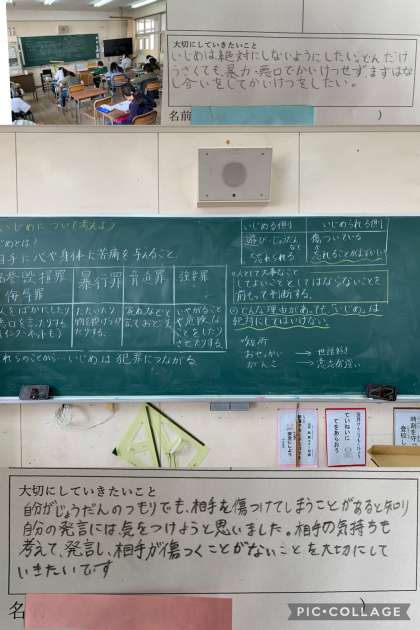 大切にしていきたいこと
いじめは絶対にしないようにしたい。どんだけ
うざくても、暴力・悪口でかいけつせず、まずはなし
合いをしてかいけつをしたい。
名前
)
いじめについて考えよう
いじめとは?
相手に心や身体に苦痛を与えること。
名誉毀損罪
侮辱罪
暴行罪
脅迫罪
強要罪
人をばかにしたり
悪口を言ったりする
(インターネットも)
たたいたり
物を投げつけ
たりする。
死ねなどと
言っておどす
いやがること
や危険な
ことをしたり
させたりする。
これらのことから…いじめは犯罪につながる
いじめる側
いじめられる側
遊び・じょうだん
など
忘れられる
傷ついている
忘れることができない
○人として大事なこと
してよいことしてはならないことを
自分で判断する。
○どんな理由があっても、いじめは
絶対にしてはいけない。
短所
おせっかい → 世話好き
がんこ → 意志が強い
ていねいに
てをあらおう
時刻を守って
登校
大切にしていきたいこと
自分がじょうだんのつもりでも、相手を傷つけてしまうことがあると知り
自分の発言には気をつけようと思いました。相手の気持ちも
考えて、発言し、相手が傷つくことがないことを大切にして
いきたいです
名
)
PIC•COLLAGE